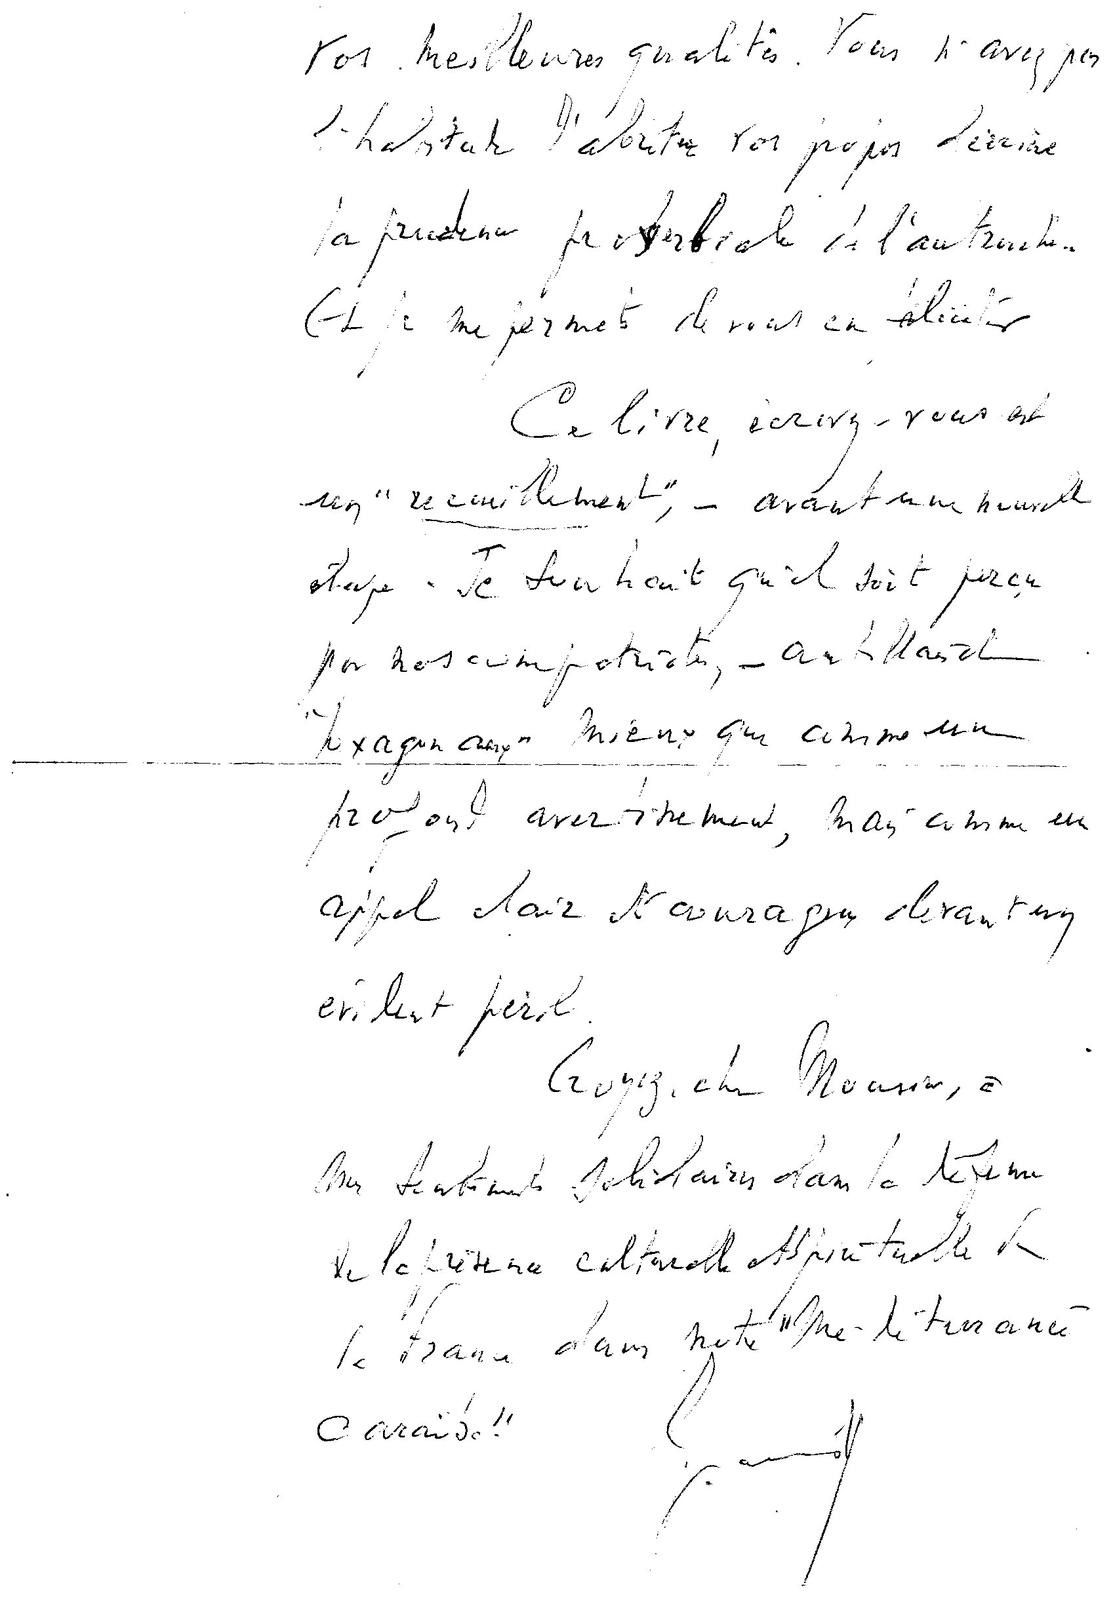 vos meilleures qualités. Vous n'avez pas
l'habitude d'abriter vos propos derrière
la prudence proverbiale de l'autruche.
Et je me permets de vous en féliciter
Ce livre, écrivez-vous est
un "recueillement", - avant une nouvelle
étape. Je souhaite qu'il soit perçu
par nos compatriotes, - antillais et
"hexagonaux" mieux que comme un
profond avertissement, mais comme un
appel clair et courageux devant un
évident péril.
Croyez, cher Monsieur, à
mes sentiments solidaires dans la défense
de la présence culturelle et spirituelle de
la France dans notre "Méditerranée
Caraïbe"